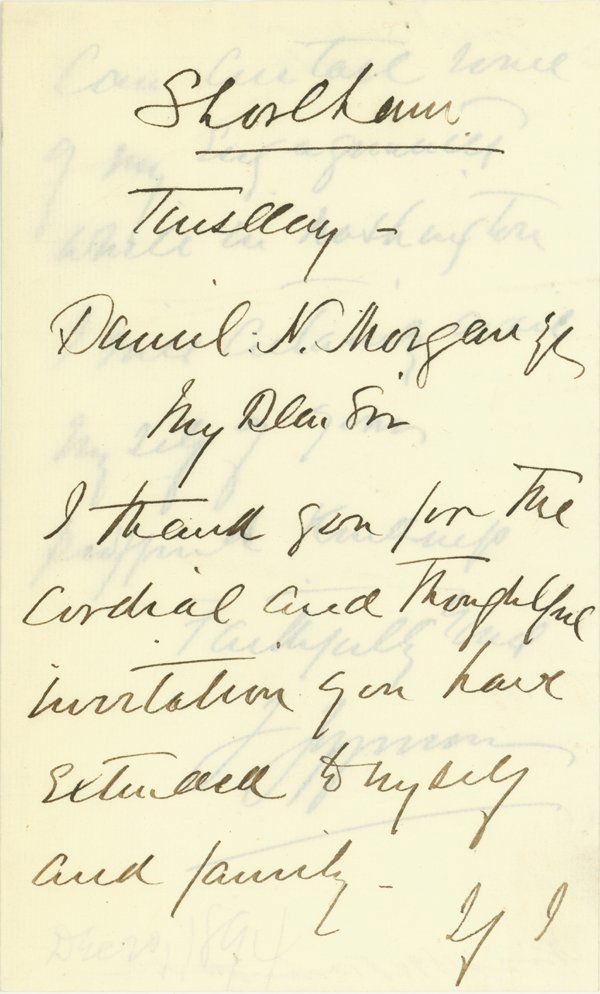 Shoreham
Tuesday -
Daniel N. Morgan Esq
My Dear Sir
I thank you for the
cordial and thoughtful
invitation you have
extended to myself
and family -
If I